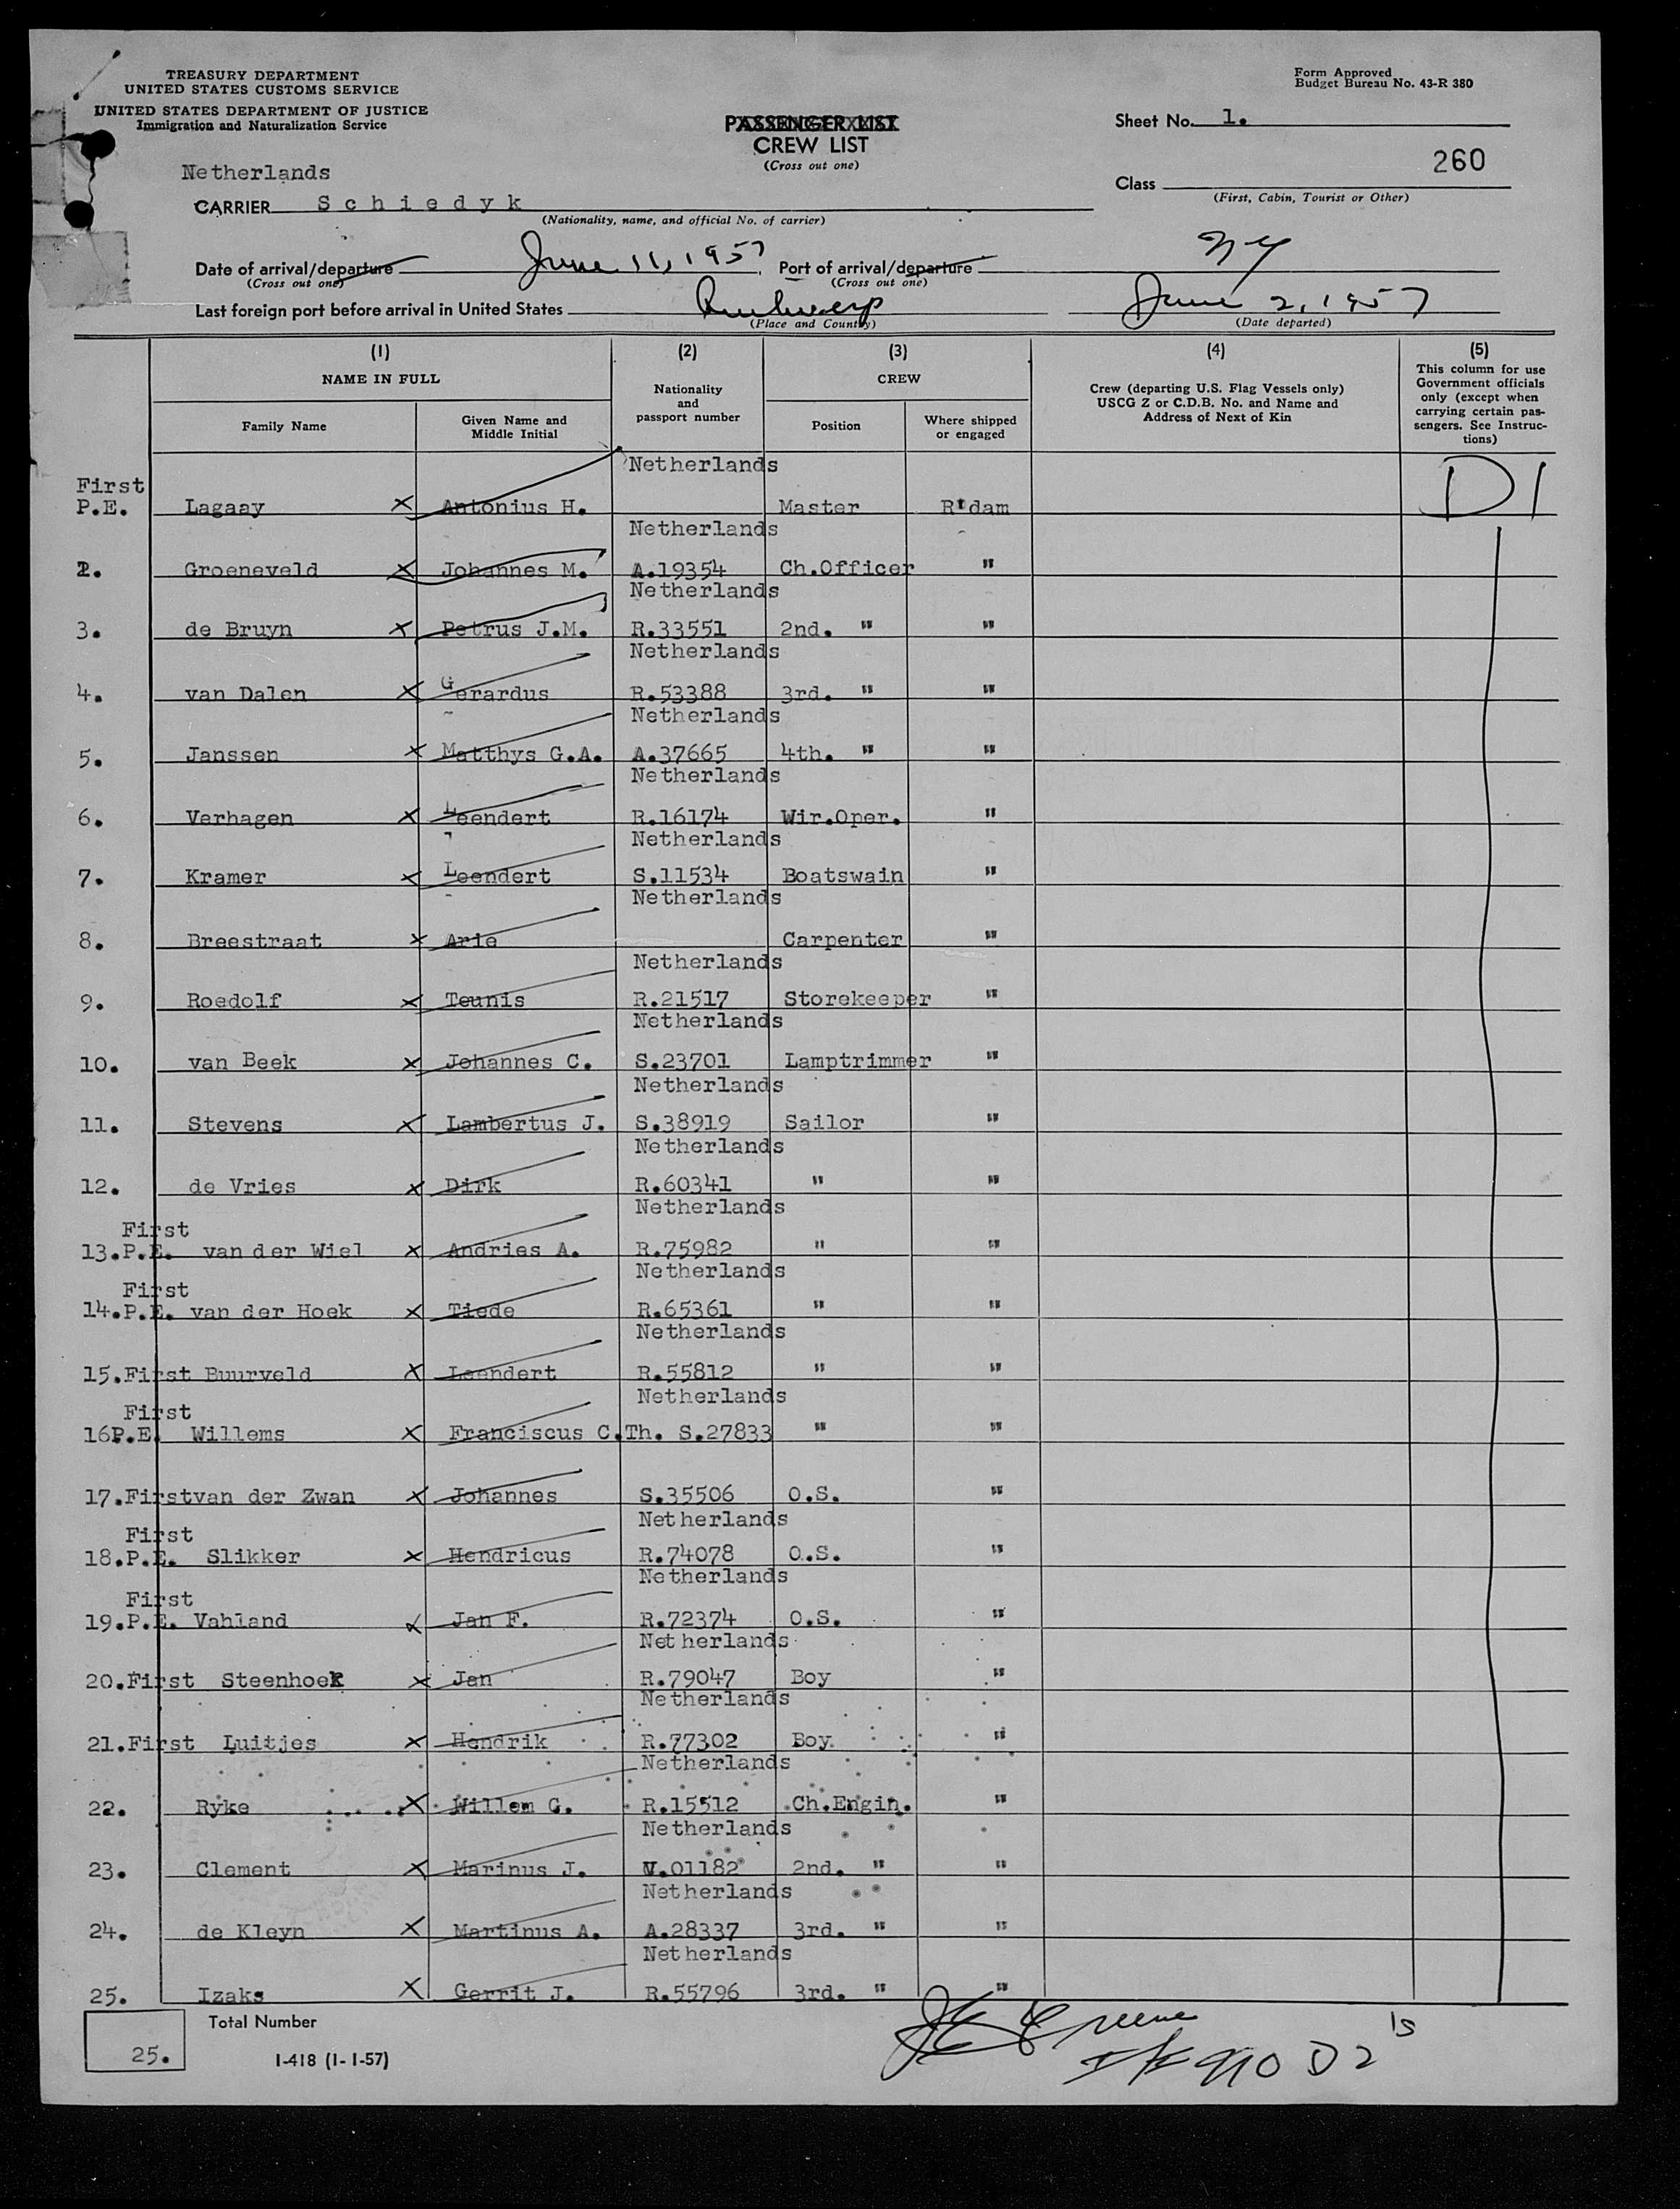 TREASURY DEPARTMENT
UNITED STATES CUSTOMS SERVICE
UNITED STATES DEPARTMENT OF JUSTICE
Immigration and Naturalization Service
Form Approved
Budget Bureau No. 43-R 380
PASSENGER LIST
CREW LIST
(Cross out one)
Sheet No. 1.
260
Class
(First, Cabin, Tourist or Other)
Netherlands
CARRIER Schiedyk
(Nationality, name, and official No. of carrier)
Date of arrival/departure June 11, 1957 Port of arrival/departure NY
(Cross out one) (Cross out one)
Last foreign port before arrival in United States Antwerp June 2, 1957
(Place and Country) (Date departed)
(1) (2) (3) (4) (5)
NAME IN FULL
Nationality and passport number
CREW
Crew (departing U.S. Flag Vessels only)
USCG Z or C.D.B. No. and Name and
Address of Next of Kin
This column for use
Government officials
only (except when
carrying certain pas-
sengers. See Instruc-
tions)
Family Name Given Name and Middle Initial Position Where shipped or engaged
First Netherlands
P.E. Lagaay X Antonius H. Master R'dam D1
Netherlands
2. Groeneveld X Johannes M. A.19354 Ch.Officer "
Netherlands
3. de Bruyn X Petrus J.M. R.33551 2nd. " "
Netherlands
4. van Dalen X Gerardus R.53388 3rd. " "
Netherlands
5. Janssen X Matthys G.A. A.37665 4th. " "
Netherlands
6. Verhagen X Leendert R.16174 Wir.Oper. "
Netherlands
7. Kramer X Leendert S.11534 Boatswain "
Netherlands
8. Breestraat X Arie Carpenter "
Netherlands
9. Roedolf X Teunis R.21517 Storekeeper "
Netherlands
10. van Beek X Johannes C. S.23701 Lamptrimmer "
Netherlands
11. Stevens X Lambertus J. S.38919 Sailor "
Netherlands
12. de Vries X Dirk R.60341 " "
First Netherlands
13.P.E. van der Wiel X Andries A. R.75982 " "
First Netherlands
14.P.E. van der Hoek X Tiede R.65361 " "
Netherlands
15.First Buurveld X Leendert R.55812 " "
First Netherlands
16P.E. Willems X Franciscus C.Th. S.27833 " "
17.First van der Zwan X Johannes S.35506 O.S. "
First Netherlands
18.P.E. Slikker X Hendricus R.74078 O.S. "
First Netherlands
19.P.E. Vahland X Jan F. R.72374 O.S. "
Netherlands
20.First Steenhoek X Jan R.79047 Boy "
Netherlands
21.First Luitjes X Hendrik R.77302 Boy "
Netherlands
22. Ryke X Willem G. R.15512 Ch.Engin. "
Netherlands
23. Clement X Marinus J. V.01182 2nd. " "
Netherlands
24. de Kleyn X Martinus A. A.28337 3rd. " "
Netherlands
25. Izaks X Gerrit J. R.55796 3rd. " "
Total Number
25.
I-418 (1-1-57)
Greene